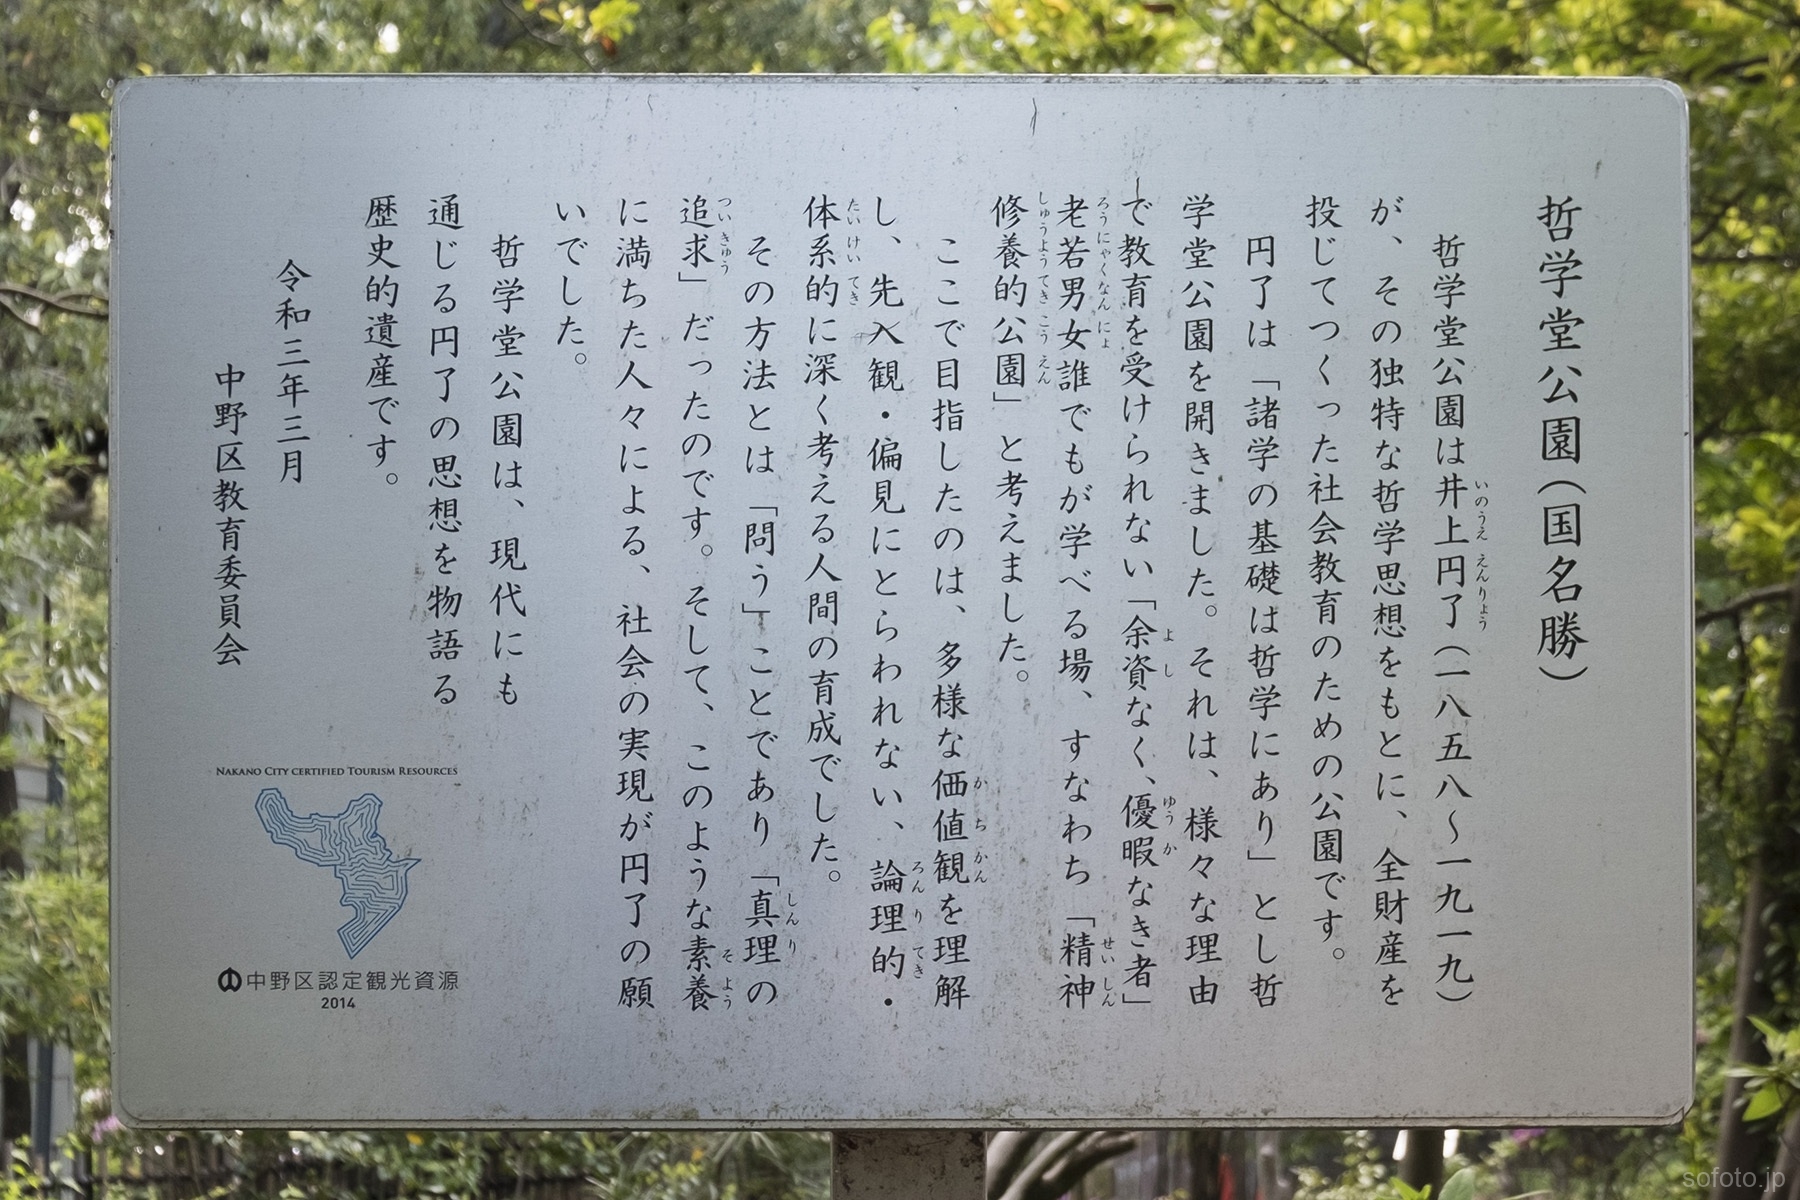 哲学堂公園(国名勝)
哲学堂公園は井上円了(一八五八〜一九一九)
が、その独特な哲学思想をもとに、全財産を
投じてつくった社会教育のための公園です。
円了は「諸学の基礎は哲学にあり」とし哲
学堂公園を開きました。それは、様々な理由
で教育を受けられない「余資なく、優暇なき者」
老若男女誰でもが学べる場、すなわち「精神
修養的公園」と考えました。
ここで目指したのは、多様な価値観を理解
し、先入観・偏見にとらわれない、論理的・
体系的に深く考える人間の育成でした。
その方法とは「問う」ことであり「真理の
追求」だったのです。そして、このような素養
に満ちた人々による、社会の実現が円了の願
いでした。
哲学堂公園は、現代にも
通じる円了の思想を物語る
歴史的遺産です。
令和三年三月
中野区教育委員会
いのうええんりょう
よし
ゆうか
ろうにゃくなんにょ
せいしん
しゅうようてきこうえん
かちかん
ろんりてき
たいけいてき
しんり
ついきゅう
そよう
NAKANO CITY CERTIFIED TOURISM RESOURCES
中野区認定観光資源
2014
sofoto.jp